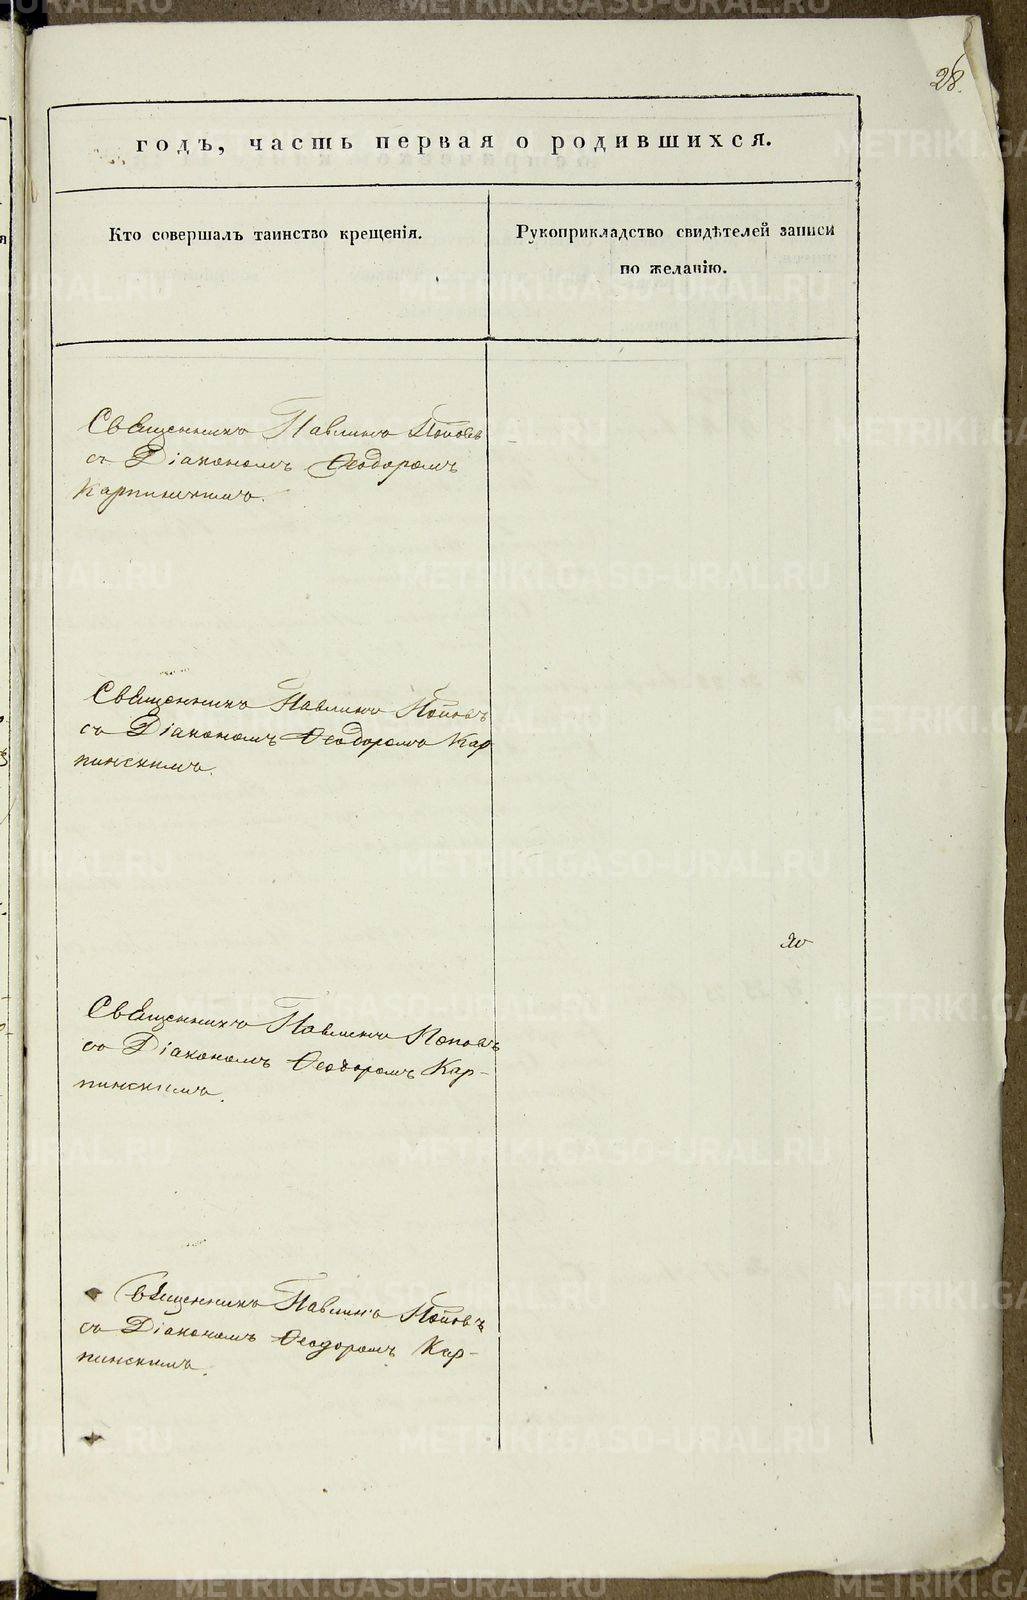 28.
годъ, часть первая о родившихся.
Кто совершалъ таинство крещенія.
Рукоприкладство свидѣтелей записи
по желанію.
Священникъ Павлинъ Поповъ
съ Діакономъ Ѳеодоромъ
Карпинскимъ.
Священникъ Павлинъ Поповъ
съ Діакономъ Ѳеодоромъ Кар
пинскимъ.
Священникъ Павлинъ Поповъ
съ Діакономъ Ѳеодоромъ Кар-
пинскимъ.
Священникъ Павлинъ Поповъ
съ Діакономъ Ѳеодоромъ Кар-
пинскимъ.
METRIKI.GASO-URAL.RU